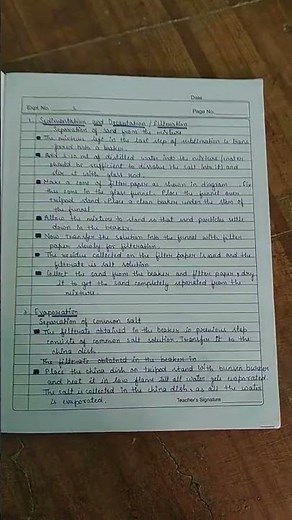 Date
Expt. No. 2
Page No.
1. Sedimentation and Decantation / Filtration
Separation of sand from the mixture
The mixture left in the last step of sublimation is trans
ferred into a beaker.
Add 5-10 ml of distilled water into the mixture (water
should be sufficient to dissolve the salt into it) and
stir it with glass rod.
Make a cone of filter paper as shown in diagram. Fix
this cone in the glass funnel. Place the funnel over
tripod stand. Place a clean beaker under the stem of
the funnel
Allow the mixture to stand so that sand particles settle
down in the beaker.
Now transfer the solution into the funnel with filter
paper slowly for filteration.
The residue collected on the filter paper is sand and the
filtrate is salt solution
Collect the sand from the beaker and filter paper & dry
it to get the sand completely separated from the
mixture
2. Evaporation
Separation of common salt
The filtrate obtained in the beaker in previous step
consist of common salt solution. Transfer it to the
china dish.
The filtrate obtained in the beaker in
Place the china dish on tripod stand with bunsen burner
and heat it in low flame till all water gets evaporated.
The salt is collected in the china dish as all the water
is evaporated.
Teacher's Signature